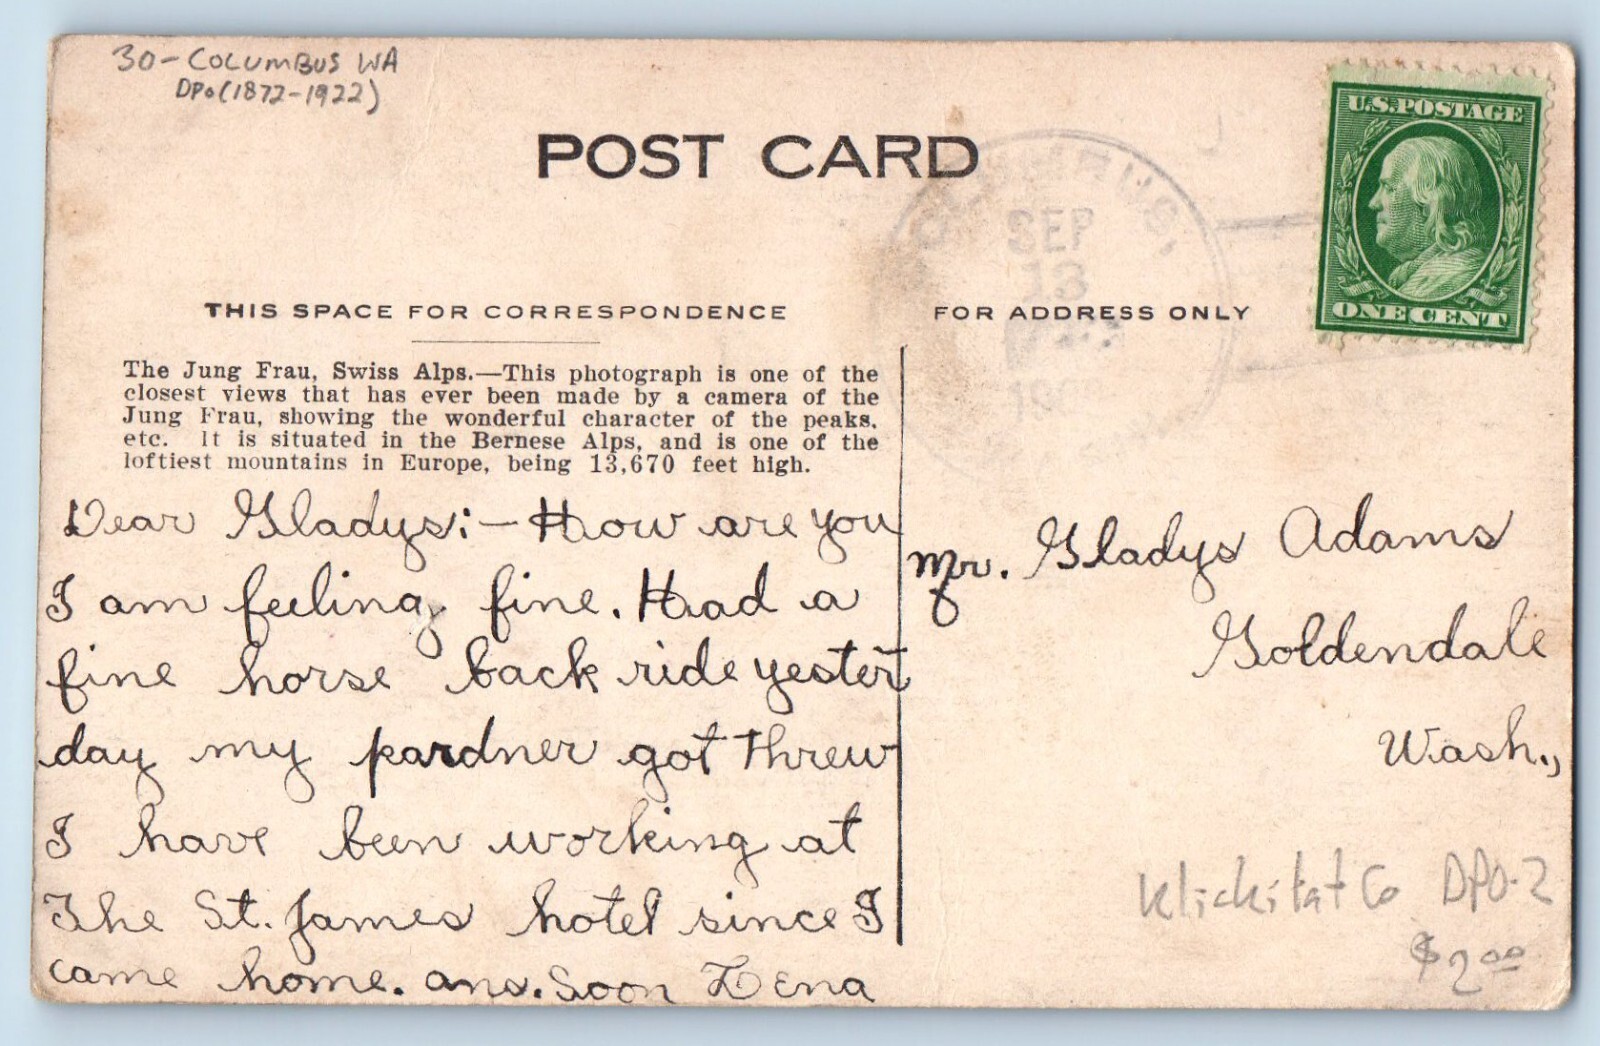 30-COLUMBUS WA
DPO(1872-1922)
U.S. POSTAGE
POST CARD
SEP
13
ONE CENT
THIS SPACE FOR CORRESPONDENCE
FOR ADDRESS ONLY
The Jung Frau, Swiss Alps.—This photograph is one of the
closest views that has ever been made by a camera of the
Jung Frau, showing the wonderful character of the peaks,
etc. It is situated in the Bernese Alps, and is one of the
loftiest mountains in Europe, being 13,670 feet high.
Dear Gladys:- How are you
I am feeling fine. Had a
fine horse back ride yester
day my pardner got threw
I have been working at
The St. James hotel since I
came home. ans. Soon Lena
Mr. Gladys Adams
Goldendale
Wash.,
Klickitat Co DPO-2
$2.00